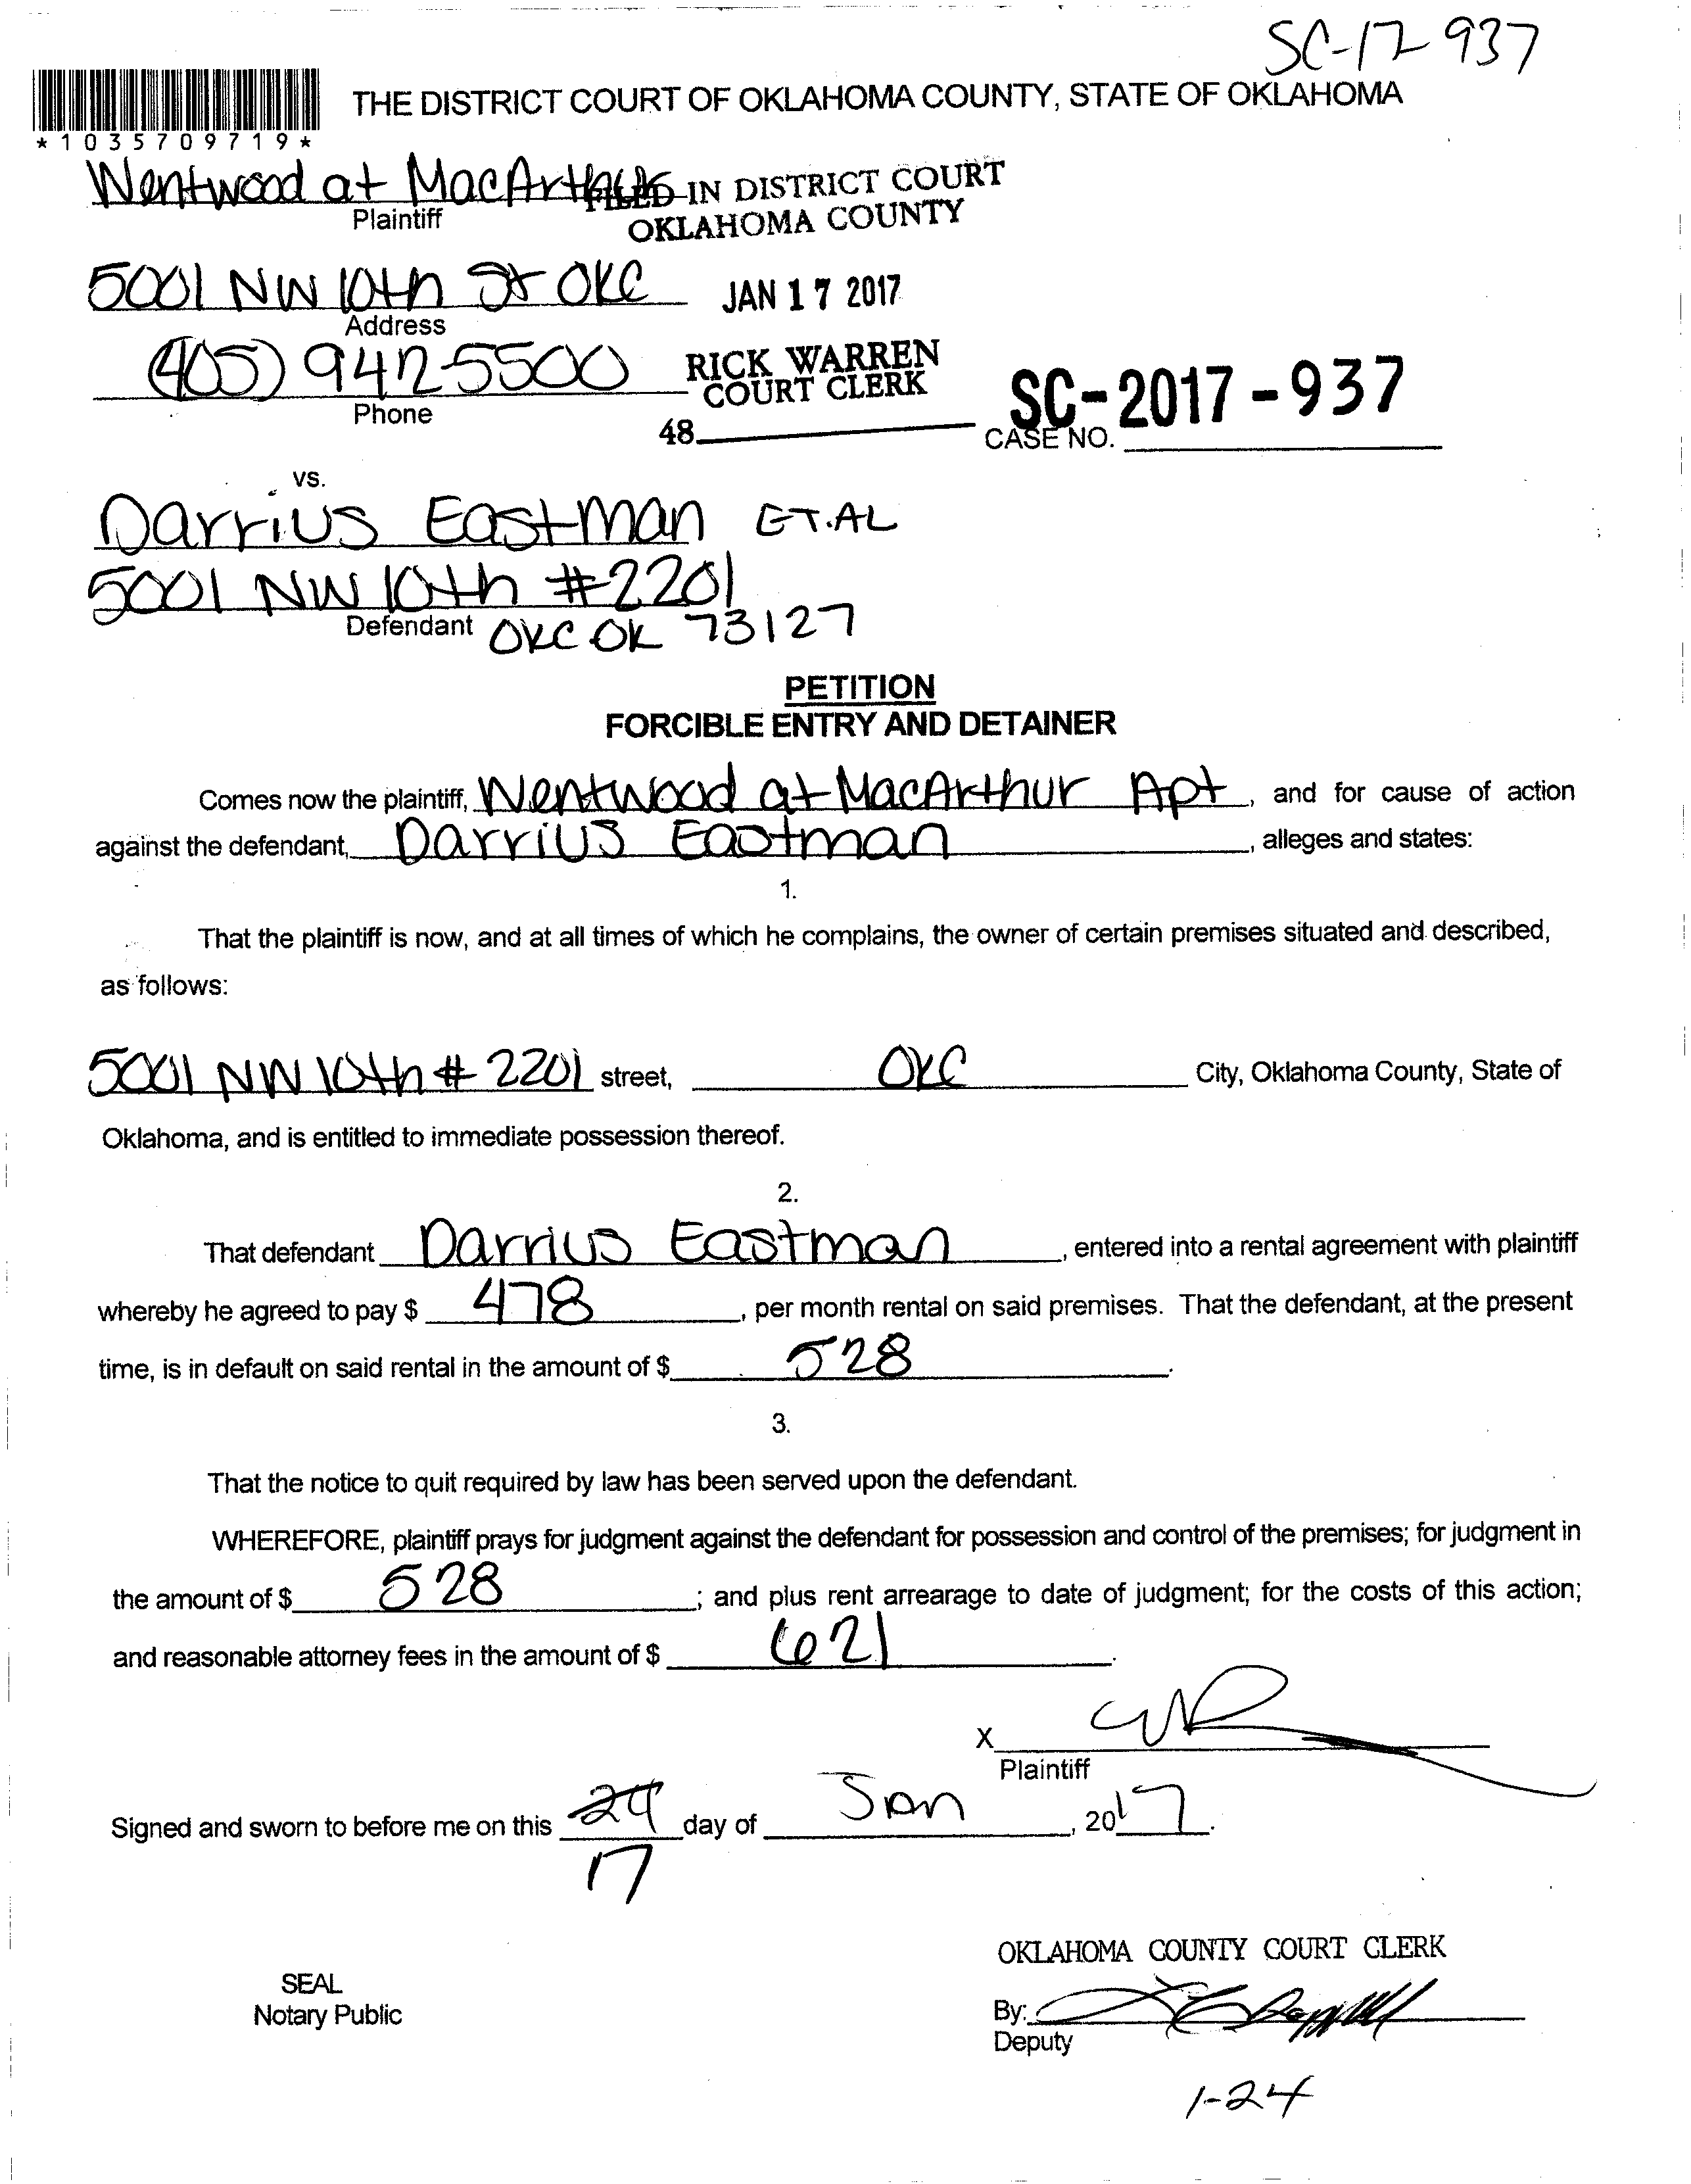 SC-17-937
THE DISTRICT COURT OF OKLAHOMA COUNTY, STATE OF OKLAHOMA
*1035709719*
Wentwood at MacArthur
FILED IN DISTRICT COURT
Plaintiff
OKLAHOMA COUNTY
5001 NW 10th St OKC
JAN 17 2017
Address
(405) 942-5500
RICK WARREN
COURT CLERK
Phone
48
SC-2017-937
CASE NO.
vs.
Darrius Eastman ET.AL
5001 NW 10th #2201
Defendant OKC OK 73127
PETITION
FORCIBLE ENTRY AND DETAINER
Comes now the plaintiff, Wentwood at MacArthur Apt, and for cause of action
against the defendant, Darrius Eastman, alleges and states:
1.
That the plaintiff is now, and at all times of which he complains, the owner of certain premises situated and described,
as follows:
5001 NW 10th # 2201 street, OKC City, Oklahoma County, State of
Oklahoma, and is entitled to immediate possession thereof.
2.
That defendant Darrius Eastman, entered into a rental agreement with plaintiff
whereby he agreed to pay $ 478, per month rental on said premises. That the defendant, at the present
time, is in default on said rental in the amount of $ 528.
3.
That the notice to quit required by law has been served upon the defendant.
WHEREFORE, plaintiff prays for judgment against the defendant for possession and control of the premises; for judgment in
the amount of $ 528; and plus rent arrearage to date of judgment; for the costs of this action;
and reasonable attorney fees in the amount of $ 621.
X
Plaintiff
Signed and sworn to before me on this 24 day of Jan, 2017.
17
OKLAHOMA COUNTY COURT CLERK
SEAL
Notary Public
By:
Deputy
1-24